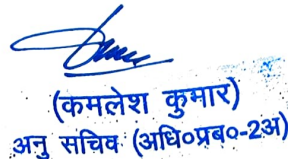 (कमलेश कुमार)
अनु सचिव (अधि०प्रब०-2अ)